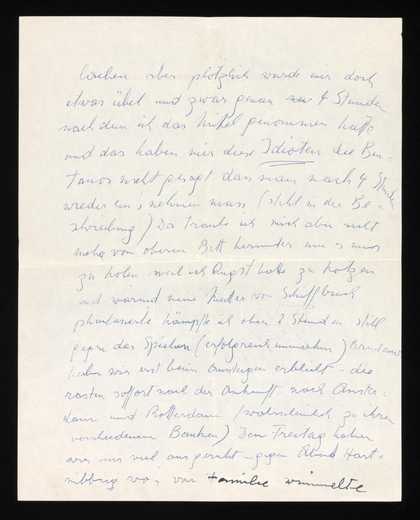 lachen aber plötzlich wurde mir doch
etwas übel und zwar genau 4 Stunden
nach dem ich das Mittel genommen hatte
und das haben mir diese Idioten die Ben-
tanos nicht gesagt dass man nach 4 Stunden
wieder eins nehmen muss (steht in der Be-
schreibung) Da traute ich mich aber nicht
mehr vom oberen Bett herunter um s mir
zu holen weil ich Angst hatte zu kotzen
und während meine Mutter von Schiffbruch
phantasierte kämpfte ich oben 2 Stunden still
gegen das Speiben (erfolgreich immerhin)
haben wir erst beim Aussteigen erblickt - die
rasten sofort nach der Ankunft nach Amster-
dam und Rotterdam (wahrscheinlich zu ihren
verschiedenen Banken) Den Freitag haben
wir uns viel ausgeruht - gegen Abend Hart-
wo s von Familie wimmelte